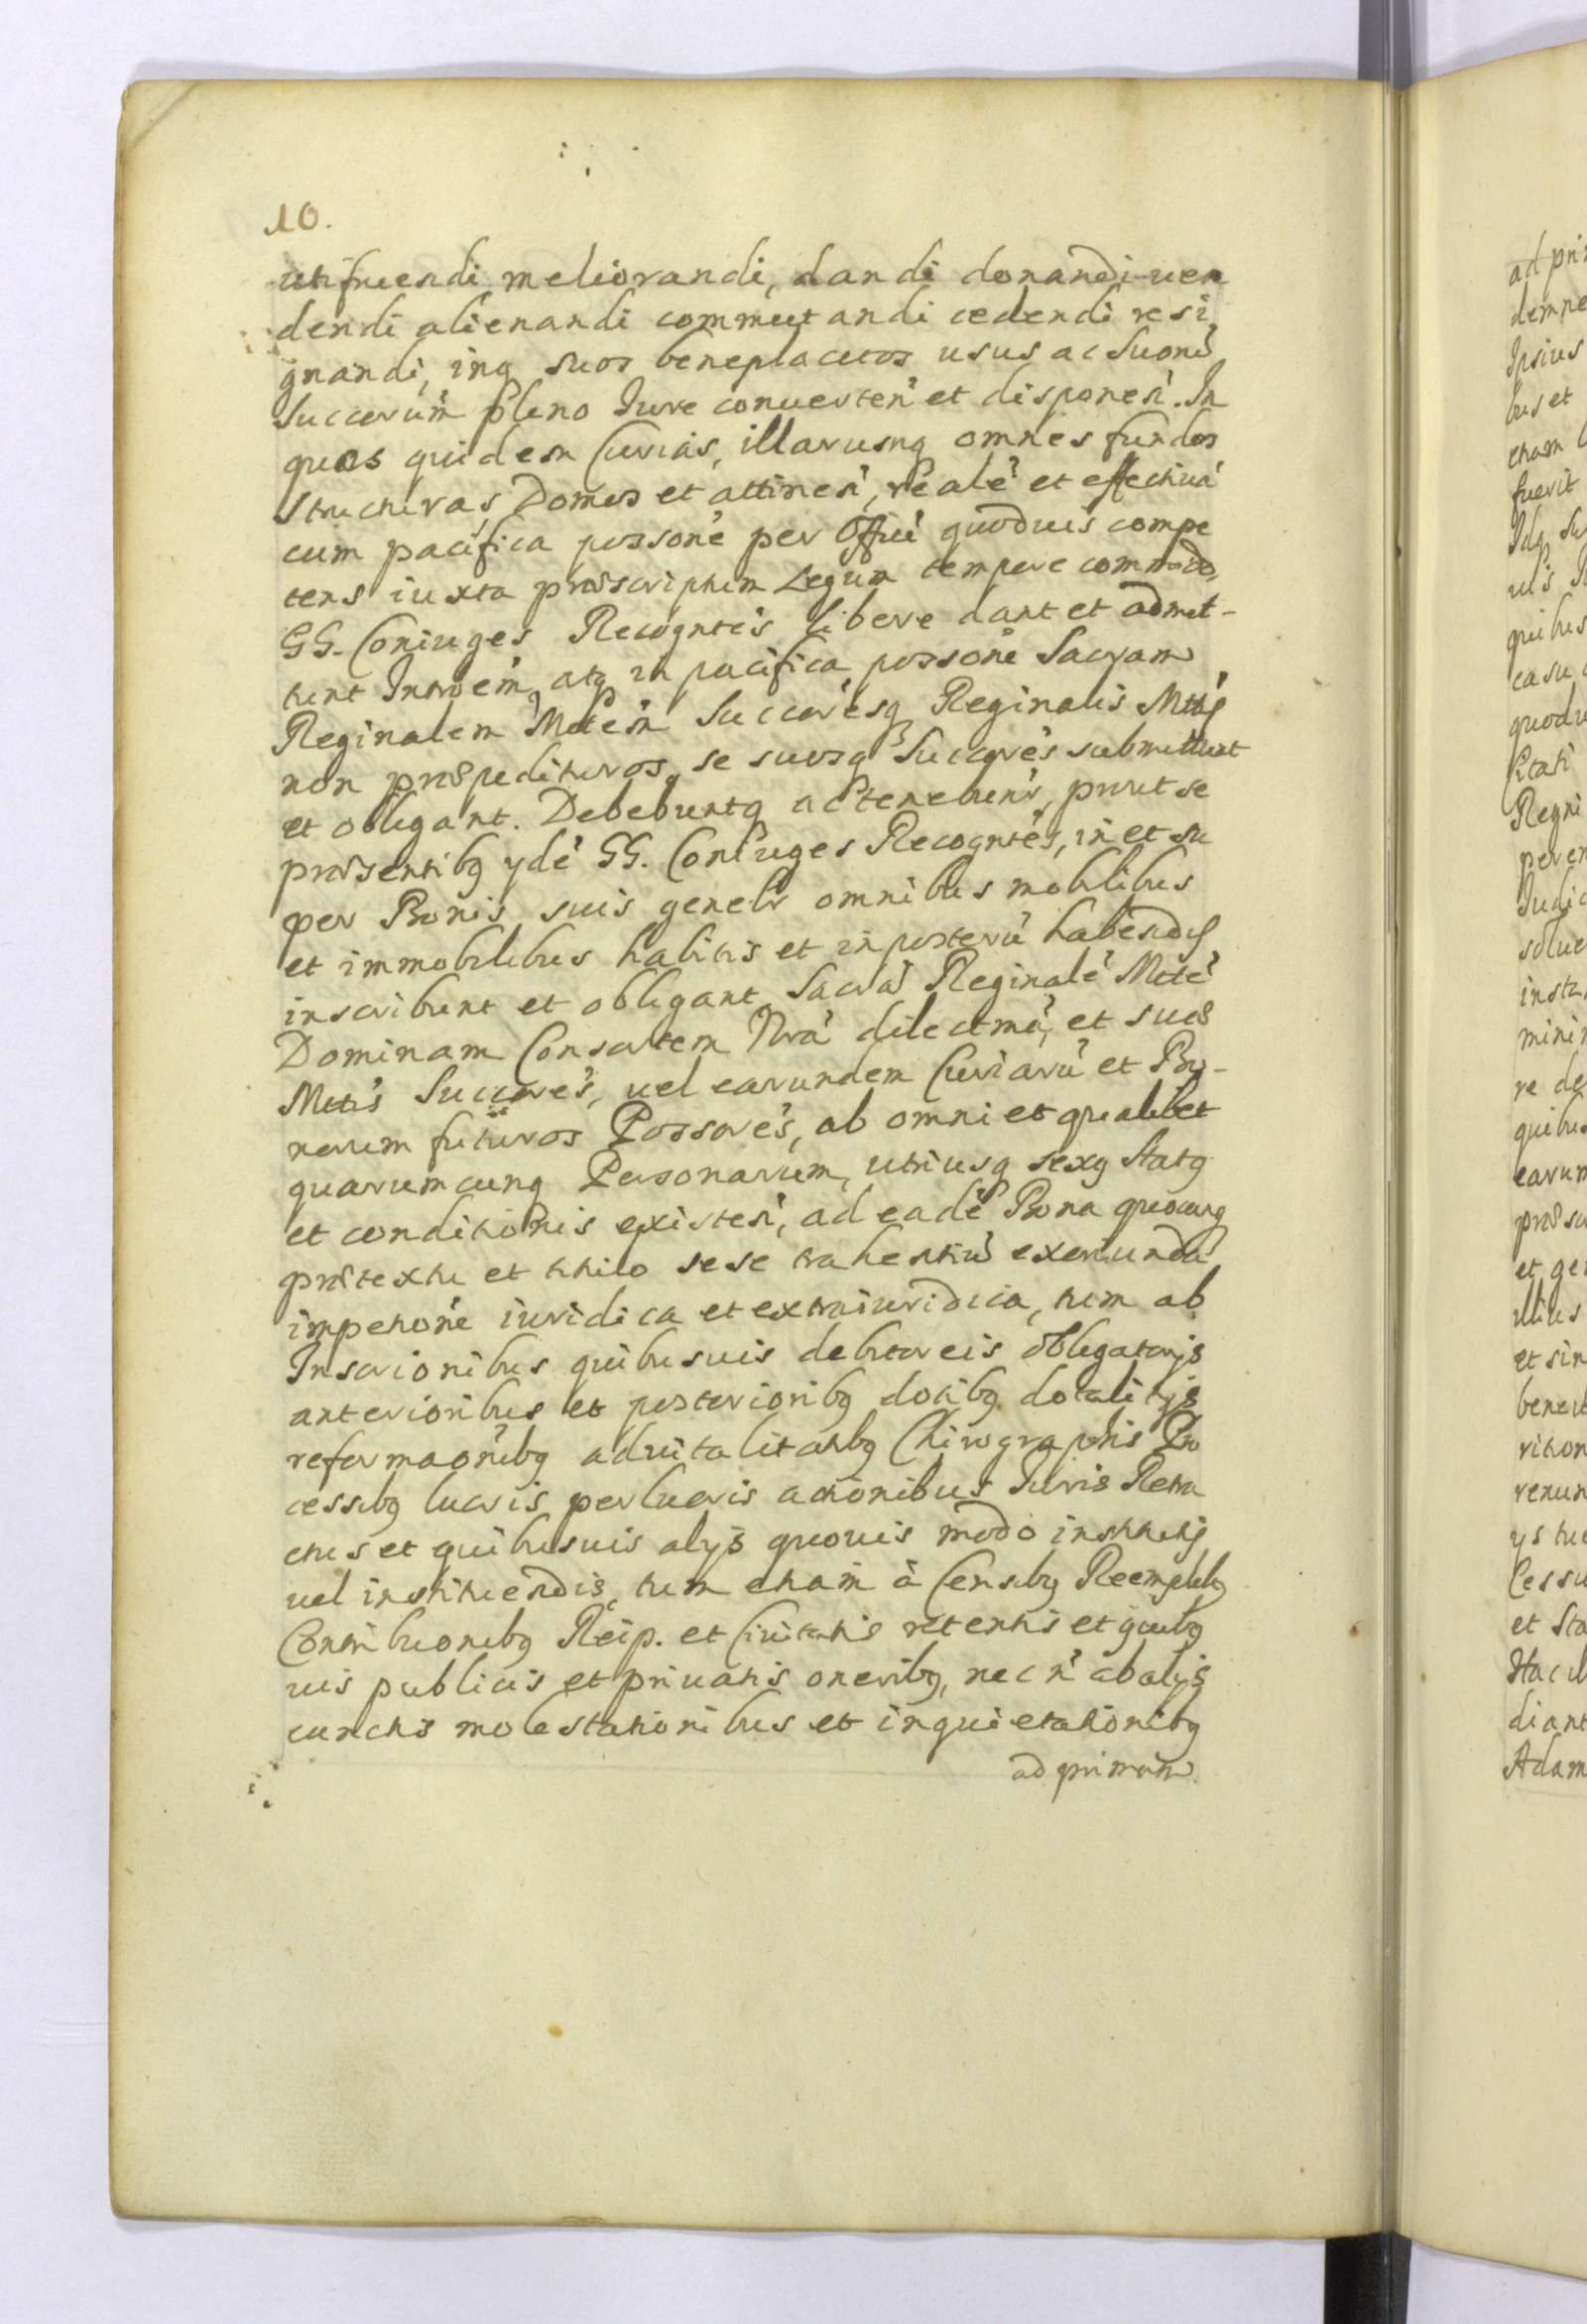 10.
utifruendi meliorandi, dandi donandi uen
dendi alienandi commutandi cedendi resi
gnandi, inq suos beneplacitos usus ac suorũ
Succorũm pleno Iure conuerteñ et disponeñ. In
quas quidem Curias, illarumq omnes fundos
structuras, Domos et attineñ, realẽ et effectiuã
cum pacifica possoñe per Offiũ quoduis compe
tens iuxta præscriptum Legum tempore commodo,
GG. Coniuges Recognteš libere dant et admit-
tunt Introẽm, atq in pacifica possoñe Sacram
Reginalem Mttẽm Succoresq Reginalis Mttis
non præpedituros, se suosq Succores submittunt
et obligant. Debebuntq ac tenebunr, prout se
præsentibq ydẽ GG. Coniuges Recogntes, in et su
per Bonis suis genelr omnibus mobilibus
et immobilibus habitis et in posterũ habendis
inscribunt et obligant, Sacrã Reginalẽ Mttẽ
Dominam Consortem Nrã dilectmã, et suos
Mttis Succores, uel earundem Curiarũ et Bo-
norum futuros Possores, ab omni et qualibet
quarumcunq Personarum, utriusq sexq statq
et conditionis existeñ, ad eadẽ Bona quocunq
prætextu et titulo sese trahentiũ exeriunda
impetoñe iuridica et extraiuridica, tum ab
Inscrionibus quibusuis debitoreis obligatorijs
anterioribus et posterioribq dotibq dotalitijs
reformaoñibq aduitalitatibq Chirographis Pro
cessibq lucris perlucris actionibus Iuris Retra
ctus et quibusuis alijs quouis modo institutis
uel instituendis, tum etiam à Censibq Reemptibq
Contribuonibq Reip. et Ciuitatis retentis et quibq
uis publicis et priuatis oneribq, nec ñ ab alijs
cunctis molestationibus et inquietationibq
ad primam